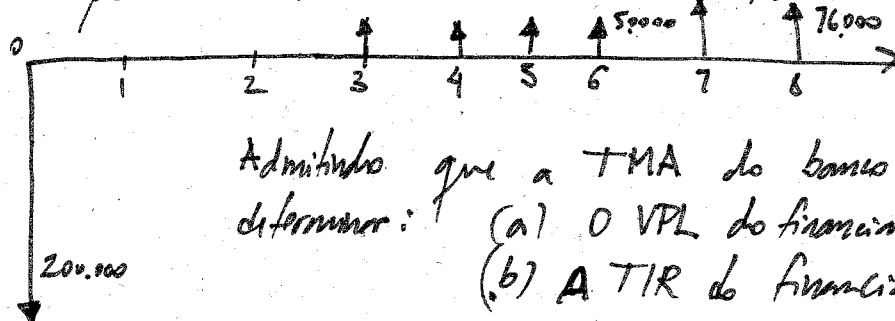 0 1 2 3 4 5 6 7 8
50.000 76.000
200.000
Admitindo que a TMA do banco
determinar: (a) O VPL do financia
(b) A TIR do financia